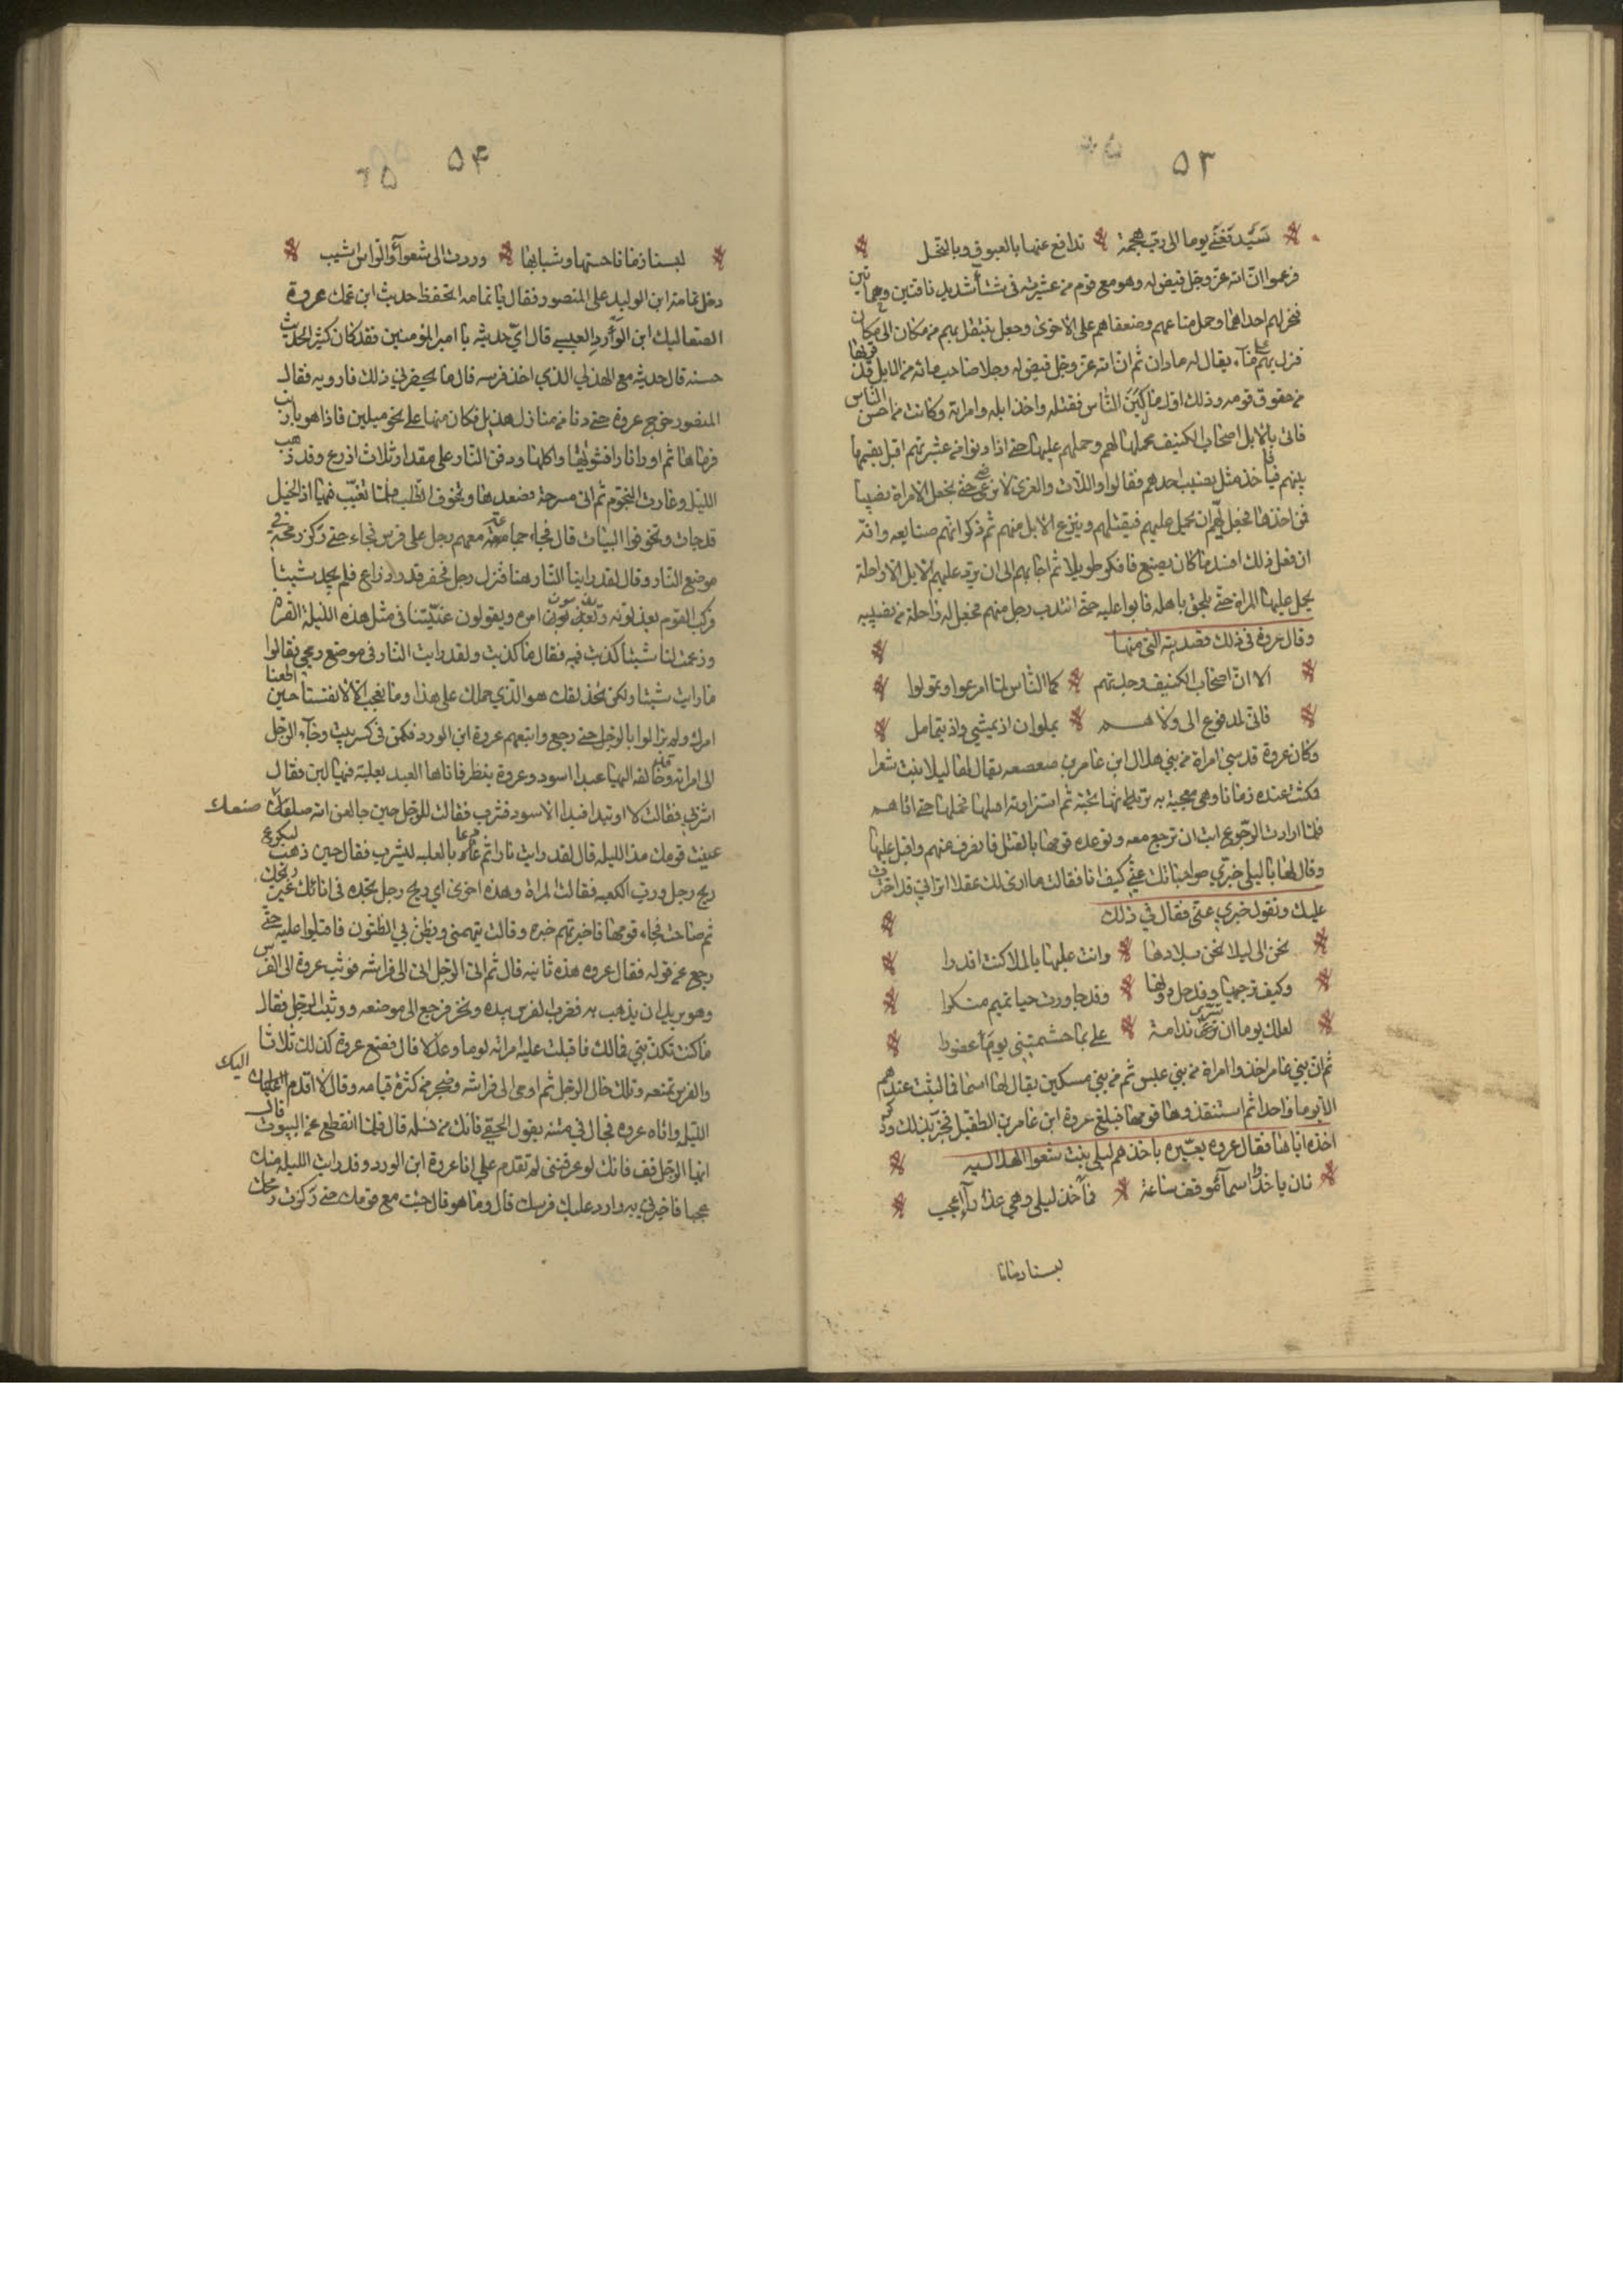 ۵۳
سيدفعني يوما الى رب هجمة يدافع عنها بالعبوق وبالنخل
فزعموا ان الله عز وجل قيض له وهو مع قوم من عشيرته في شتاء شديد ناقتين دهماوين
فنحر لهم احداهما وحمل متاعهم وضعفاهم على الاخرى وجعل ينتقل بهم من مكان الى مكان
فنزل بهم على ماء يقال له ماوان ثم ان الله عز وجل قيض له رجلا صاحب مائة من الابل قد فر بها
من حقوق قومه وذلك اول ما الناس فقتله واخذ ابله وامراته وكانت من احسن الناس
فاتى بالابل اصحاب الكنيف فحملها لهم وحملهم عليها حتى اذا دنوا من عشيرتهم اقبل يقسمها
بينهم فياخذ مثل نصيب احدهم فقالوا واللات والعزى لا نرضى حتى يجعل الامراة نصيبا
فمن اخذها فجعل يهم ان يحمل عليهم فيقتلهم وينزع الابل منهم ثم ذكر انهم صنايعه وانه
ان فعل ذلك افسد ما كان يصنع فافكر طويلا ثم اجابهم الى ان يرد عليهم الابل الا راحلة
يحمل عليها المراة حتى يلحق باهله فابوا عليه حتى انتدب رجل منهم فجعل له راحلة من نصيبه
وقال عروة في ذلك قصيدته التي منها
الا ان اصحاب الكنيف وجدتهم كما الناس لما امرعوا وتمولوا
فاني لمدفوع الى ولاهم بماوان اذ يمشي واذ يتململ
وكان عروة قد سبى امراة من بني هلال ابن عامر بن صعصعه يقال لها ليلا بنت شعرا
فمكثت عنده زمانا وهي معجبة به تريه انها تحبه ثم استزارته اهلها فحملها حتى اتاهم
فلما ارادت الرجوع ابت ان ترجع معه وتوعده قومها بالقتل فانصرف عنهم واقبل عليها
وقال لها يا ليلى خبري صواحباتك عني كيف انا فقالت ما ارى لك عقلا اتراني قد اخترت
عليك وتقول خبري عني فقال في ذلك
تحن الى ليلا بحن بلادها وانت عليها بالملا كنت اقدرا
وكيف ترجيها وقد حل دونها وقد جاورت حيا بتيمم منكرا
لعلك يوما ان تسري ندامة علي بما جشمتني يوم غضورا
ثم ان بني عامر اخذوا امراة من بني عبس ثم من بني مسكين يقال لها اسما فما لبثت عندهم
الا يوما واحدا ثم استنقذوها قومها فبلغ عروة ابن عامر بن الطفيل فخر بذلك وذكر
اخذه اياها فقال عروه يعيره باخذهم ليلى بنت شعوا الهلاليه
فان ياخذوا اسماء موقف ساعة فاخذ ليلى وهي عذراء اعجب
لبسنا زمانا
۵۴
لبسنا زمانا حسنها وشبابها وردت الى شعواء والراس اشيب
دخل ثمامة ابن الوليد على المنصور فقال يا ثمامه اتحفظ حديث ابن عمك عروة
الصعاليك ابن الورد العبسي قال اي حديثه يا امير المؤمنين فقد كان كثير الحديث
حسنه قال حديثه مع الهذلي الذي اخذ فرسه قال ما يحضرني ذلك فارويه فقال
المنصور خرج عروة حتى دنا من منازل هذيل فكان منها على نحو ميلين فاذا هو بارنب
فرماها ثم اورا نارا فشواها واكلها ودفن النار على مقدار ثلاث اذرع وقد ذهب
الليل وغارت النجوم ثم اتى سرحة فصعدها وتخوف الطلب فلما تغيب فيها اذا الخيل
قد جات وتخوفوا البيات قال فجاء جماعة معهم رجل على فرس فجاء حتى ركز رمحه في
موضع النار وقال لقد راينا النار هنا فنزل رجل فحفر قدر ذراع فلم يجد شيئا
فركب القوم يعذلونه ويعيبون امره ويقولون عنيتنا في مثل هذه الليلة القرة
وزعمت لنا شيئا كذبت فيه فقال ما كذبت ولقد رايت النار في موضع رمحي فقالوا
ما رايت شيئا ولكن تحذلقك هو الذي حملك على هذا وما نعجب الا لانفسنا حين اطعنا
امرك ولم يزالوا بالرجل حتى رجع واتبعهم عروة ابن الورد فكمن في كسر بيت وجاء الرجل
الى امراته وخالفه اليها عبد اسود وعروة ينظر فاتاها العبد بعلبة فيها لبن فقال
اشربي فقالت لا او تبدا فبدا الاسود فشرب فقالت للرجل حين جا لعن الله صلفك صنعك
عنيت قومك منذ الليله قال لقد رايت نارا ثم دعا بالعلبه ليشرب فقال حين ذهب ليكرع
ريح رجل ورب الكعبه فقالت المراة وهذه اخرى اي ريح رجل تجده في انائك غير ريحك
ثم صاحت فجاء قومها فاخبرتهم خبره وقالت يتهمني ويظن بي الظنون فاقبلوا عليه حتى
رجع عن قوله فقال عروه هذه ثانيه قال ثم اتى الرجل الى فراشه فوثب عروة الى الفرس
وهو يريد ان يذهب به فضرب الفرس بيده ونخر فرجع الى موضعه ووثب الرجل فقال
ما كنت تكذبني فمالك فاقبلت عليه امراته لوما وعذلا قال فصنع عروة كذلك ثلاثا
والفرس تمنعه وتلك حال الرجل ثم اوى الى فراشه وضجر من كثرة قيامه وقال لا اقدم اليك
الليله واتاه عروه فجال في متنه يقول الحقي فانك من نسله قال فلما انقطع عن البيوت قال
ايها الرجل قف فانك لو عرفتني لم تقدم علي انا عروة ابن الورد وقد رايت الليله منك
عجبا فاخبرني به وارد عليك فرسك قال وما هو قال جئت مع قومك حتى ركزت رمحك